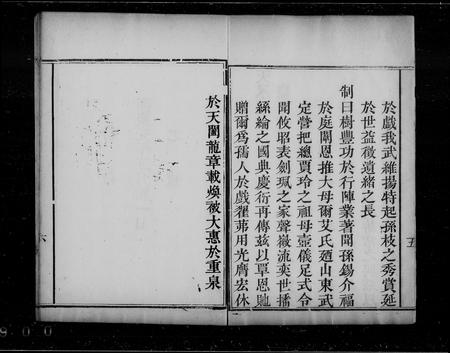 於戲我武維揚特起孫枝之秀賞延
於世益徵遺緒之長
制曰樹豐功於行陣業著聞孫錫介福
於庭闈恩推大母爾艾氏迺山東武
定營把總賈玲之祖母壼儀足式令
聞攸昭表劍珮之家聲徽流奕世播
絲綸之國典慶衍再傳茲以覃恩貤
贈爾為孺人於戲翟茀用光膺宏休
五
於天閶龍章載煥被大惠於重泉
六
900